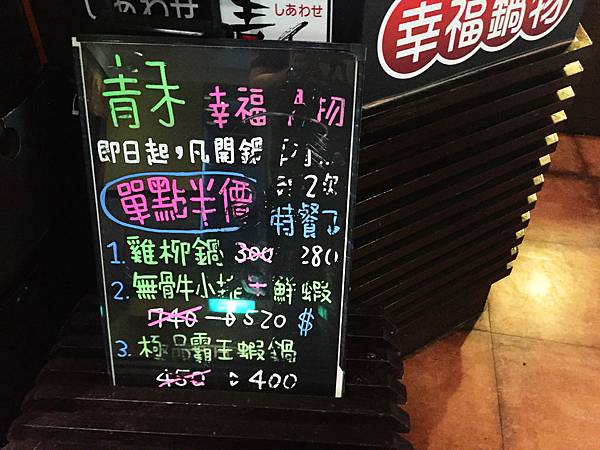 しあわせ
しあわせ
幸福鍋物
青禾 幸福 物
即日起,凡開鍋 內
單點半價 2次
特餐
1. 雞柳鍋 300 280
2. 無骨牛小排 鮮蝦
740 → 520 $
3. 極品霸王蝦鍋
450 : 400